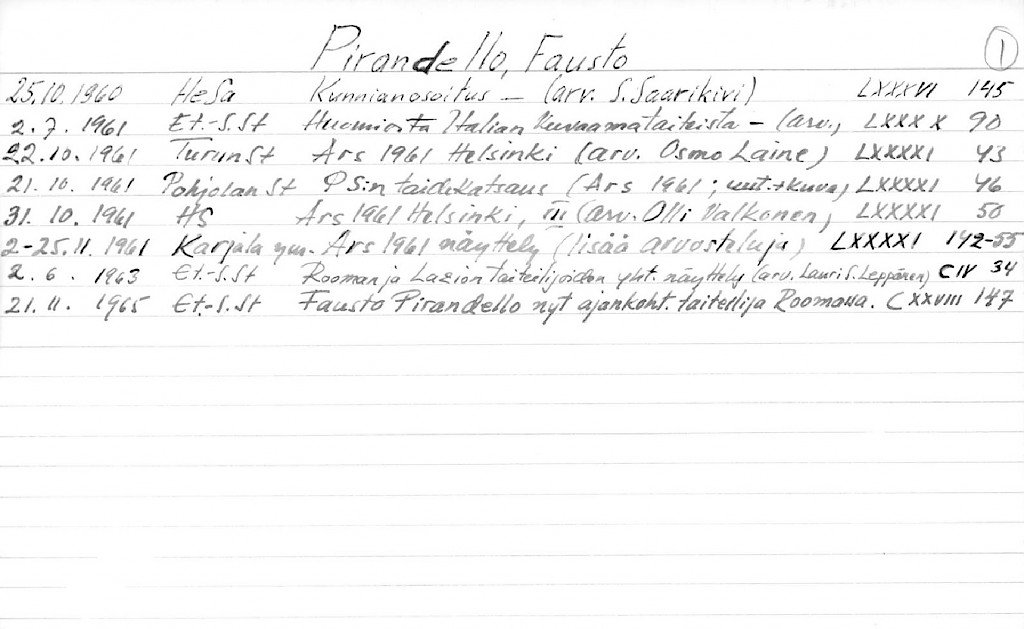 Pirandello, Fausto 1
25.10.1960 HeSa Kunnianosoitus — (arv. S. Saarikivi) LXXXVI 145
2.7.1961 Et.-S.St Huomiosta Italian kuvaamataiteista — (arv.) LXXXX 90
22.10.1961 TurunSt Ars 1961 Helsinki (arv. Osmo Laine) LXXXXI 43
21.10.1961 PohjolanSt PS:n taidekatsaus (Ars 1961; + kuva) LXXXXI 46
31.10.1961 HS Ars 1961 Helsinki, III (arv. Olli Valkonen) LXXXXI 50
2-25.11.1961 Karjala ym. Ars 1961 näyttely (lisää arvosteluja) LXXXXI 142-55
2.6.1963 Et-S.St Rooman ja Lazion taiteilijoiden yht. näyttely (arv. Lauri S. Leppänen) CIV 34
21.11.1965 Et.-S.St Fausto Pirandello nyt ajankoht. taiteilija Roomassa. CXXVIII 147